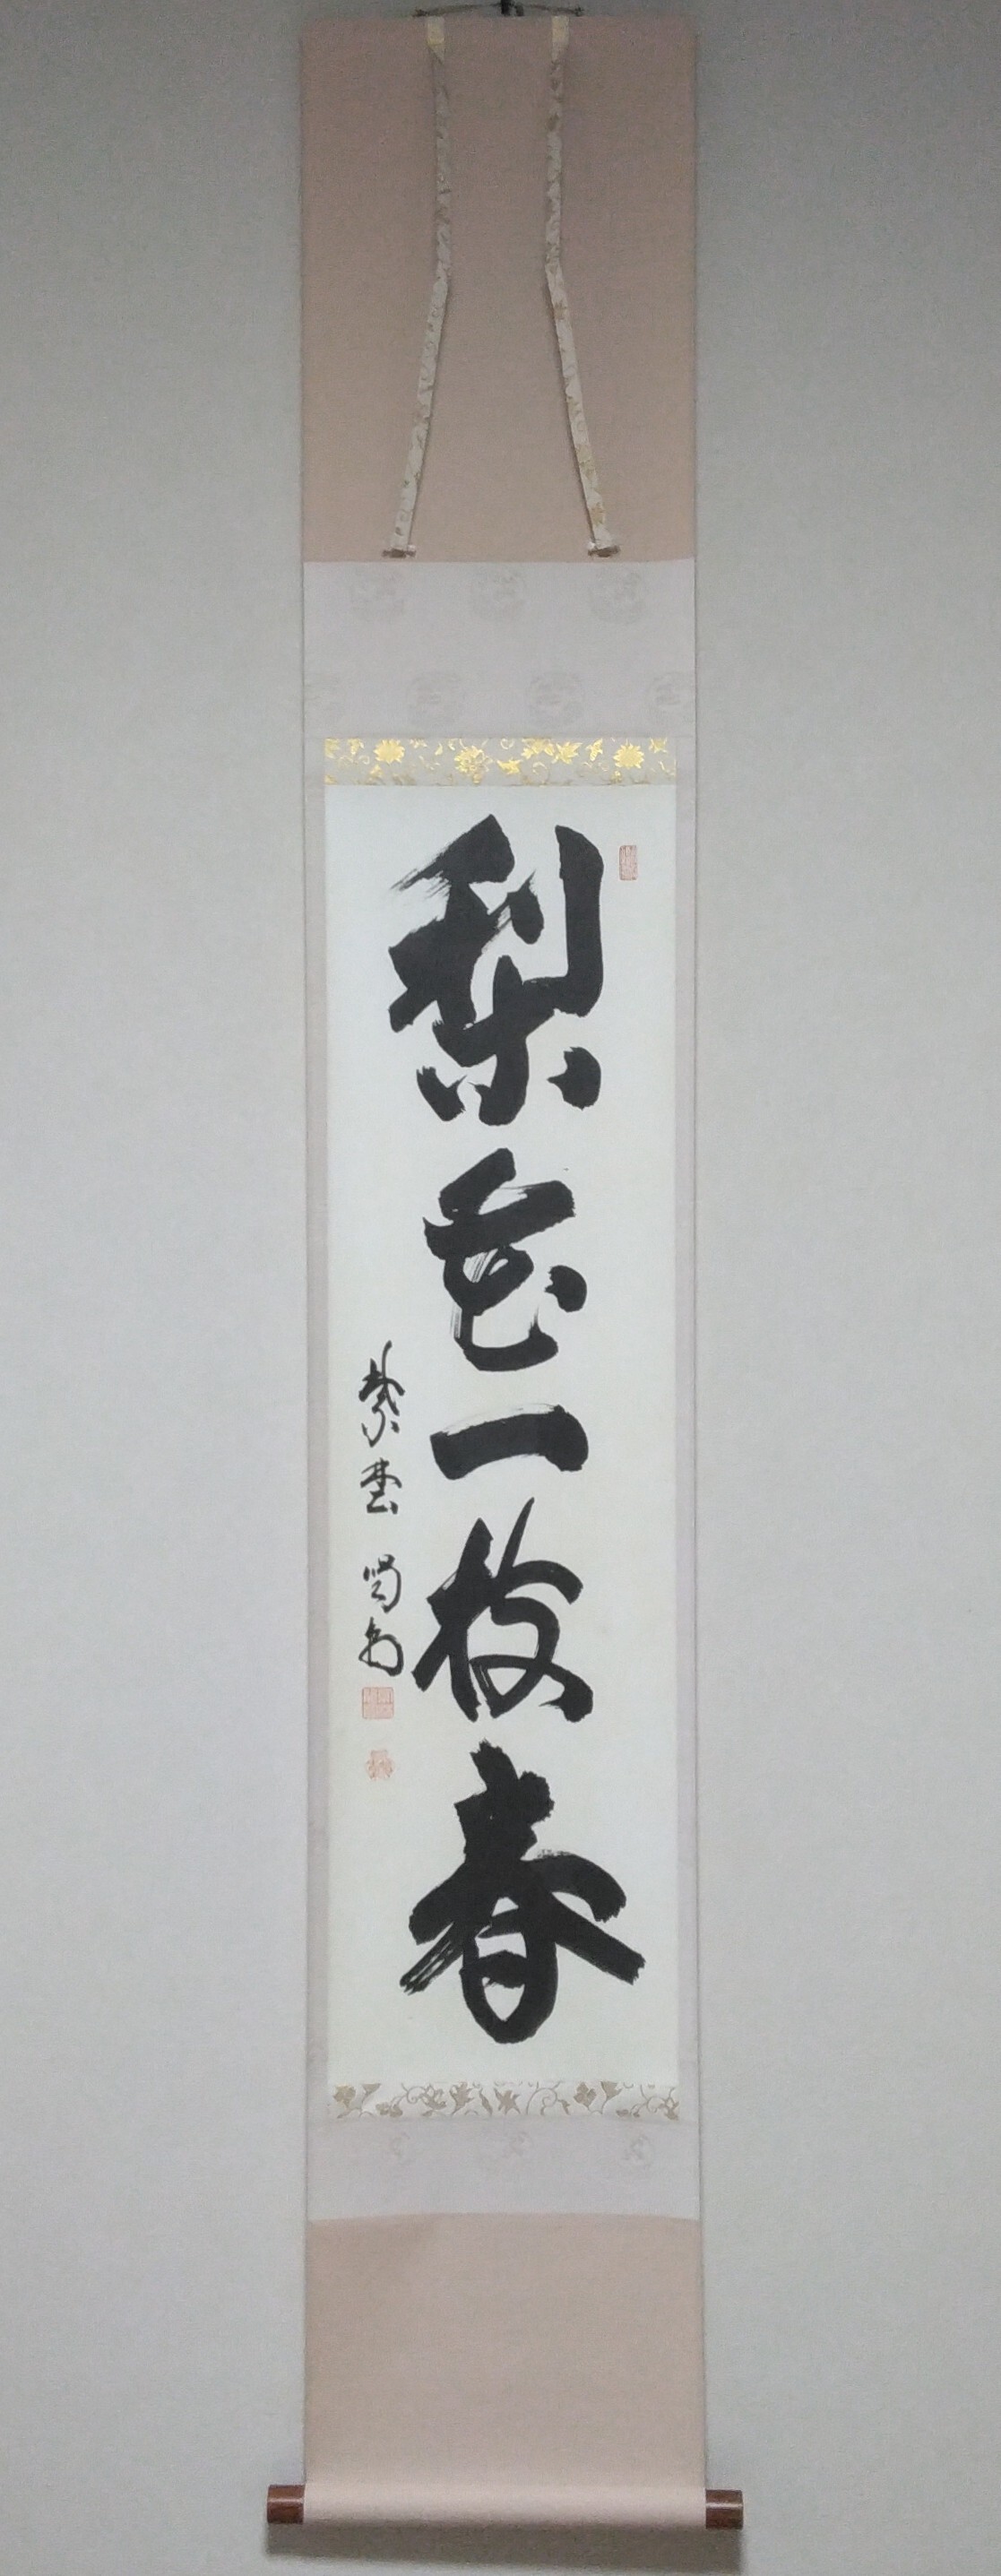 梨花一枝春
紫雲